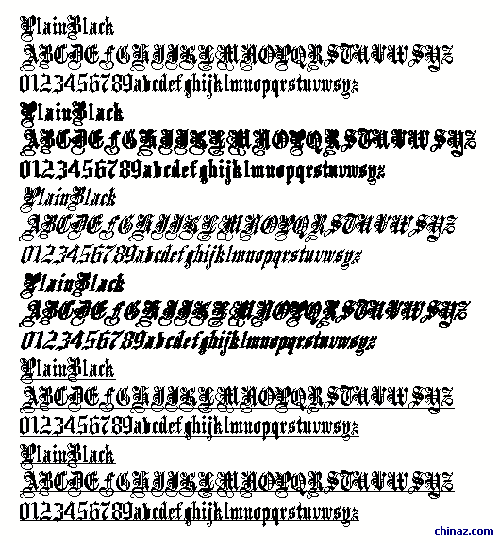 PlainBlack
ABCDEFGHIJKLMNOPQRSTUVWXYZ
0123456789abcdefghijklmnopqrstuvwxyz
PlainBlack
ABCDEFGHIJKLMNOPQRSTUVWXYZ
0123456789abcdefghijklmnopqrstuvwxyz
PlainBlack
ABCDEFGHIJKLMNOPQRSTUVWXYZ
0123456789abcdefghijklmnopqrstuvwxyz
PlainBlack
ABCDEFGHIJKLMNOPQRSTUVWXYZ
0123456789abcdefghijklmnopqrstuvwxyz
PlainBlack
ABCDEFGHIJKLMNOPQRSTUVWXYZ
0123456789abcdefghijklmnopqrstuvwxyz
PlainBlack
ABCDEFGHIJKLMNOPQRSTUVWXYZ
0123456789abcdefghijklmnopqrstuvwxyz
chinaz.com